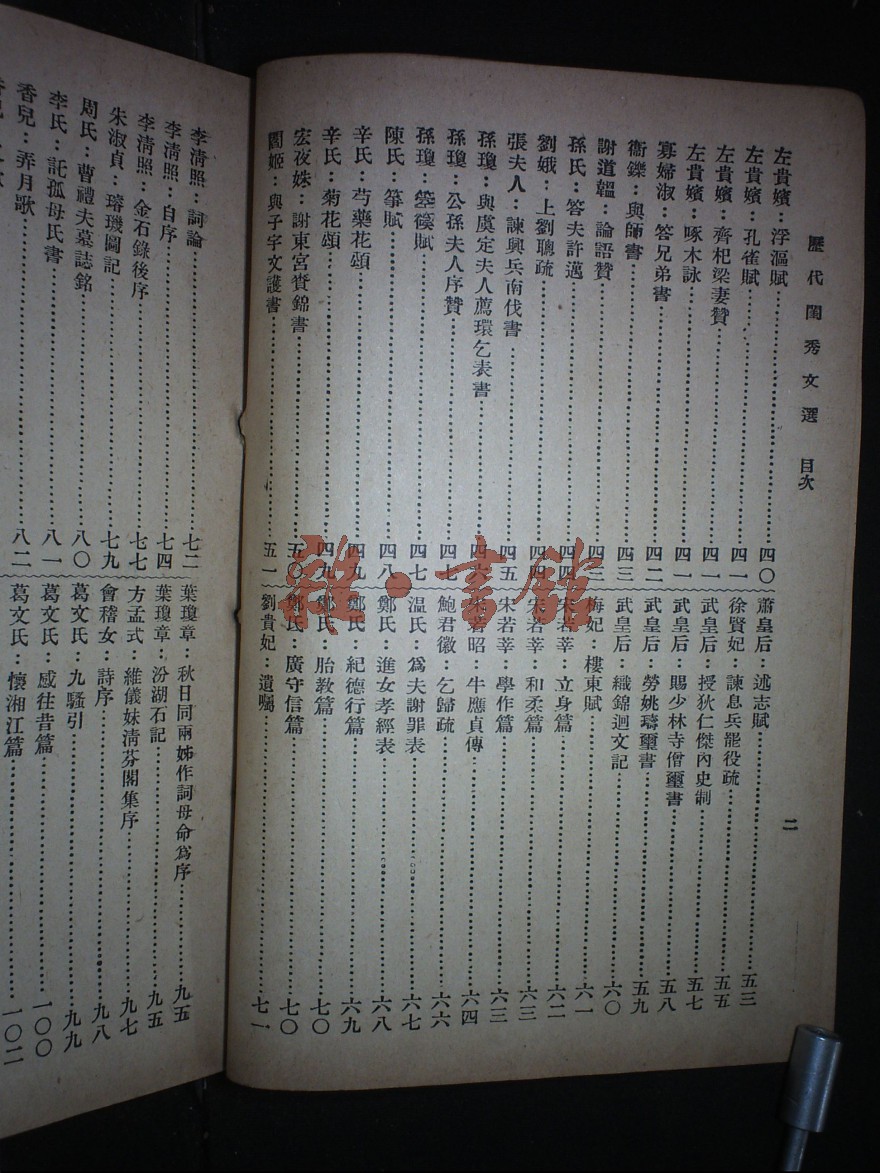 歷代閨秀文選　目次
二
左貴嬪：浮漚賦……四〇
左貴嬪：孔雀賦……四一
左貴嬪：齊杞梁妻贊……四一
左貴嬪：啄木詠……四一
寡婦淑：答兄弟書……四二
衞鑠：與師書……四三
謝道韞：論語贊……四三
孫氏：答夫許邁……四四
劉娥：上劉聰疏……四四
張夫人：諫興兵南伐書……四五
孫瓊：與虞定夫人薦環乞表書……四六
孫瓊：公孫夫人序贊……四七
孫瓊：箜篌賦……四七
陳氏：箏賦……四八
辛氏：芍藥花頌……四九
辛氏：菊花頌……四九
宏夜姝：謝東宮賚錦書……五〇
閻姬：與子宇文護書……五一
蕭皇后：述志賦……五三
徐賢妃：諫息兵罷役疏……五五
武皇后：授狄仁傑內史制……五七
武皇后：賜少林寺僧璽書……五八
武皇后：勞姚璹璽書……五九
武皇后：織錦迴文記……六〇
梅妃：樓東賦……六一
宋若莘：立身篇……六二
宋若莘：和柔篇……六三
宋若莘：學作篇……六三
宋若昭：牛應貞傳……六四
鮑君徽：乞歸疏……六六
温氏：爲夫謝罪表……六七
鄭氏：進女孝經表……六八
鄭氏：紀德行篇……六九
鄭氏：胎教篇……七〇
鄭氏：廣守信篇……七〇
劉貴妃：遺囑……七一
李清照：詞論……七二
李清照：自序……七四
李清照：金石錄後序……七七
朱淑貞：璿璣圖記……七九
周氏：曹禮夫墓誌銘……八〇
李氏：託孤母氏書……八一
香兒：弄月歌……八二
葉瓊章：秋日同兩姊作詞母命爲序……九五
葉瓊章：汾湖石記……九五
方孟式：維儀妹清芬閣集序……九七
會稽女：詩序……九八
葛文氏：九騷引……九九
葛文氏：感往昔篇……一〇〇
葛文氏：懷湘江篇……一〇二
雜·書館